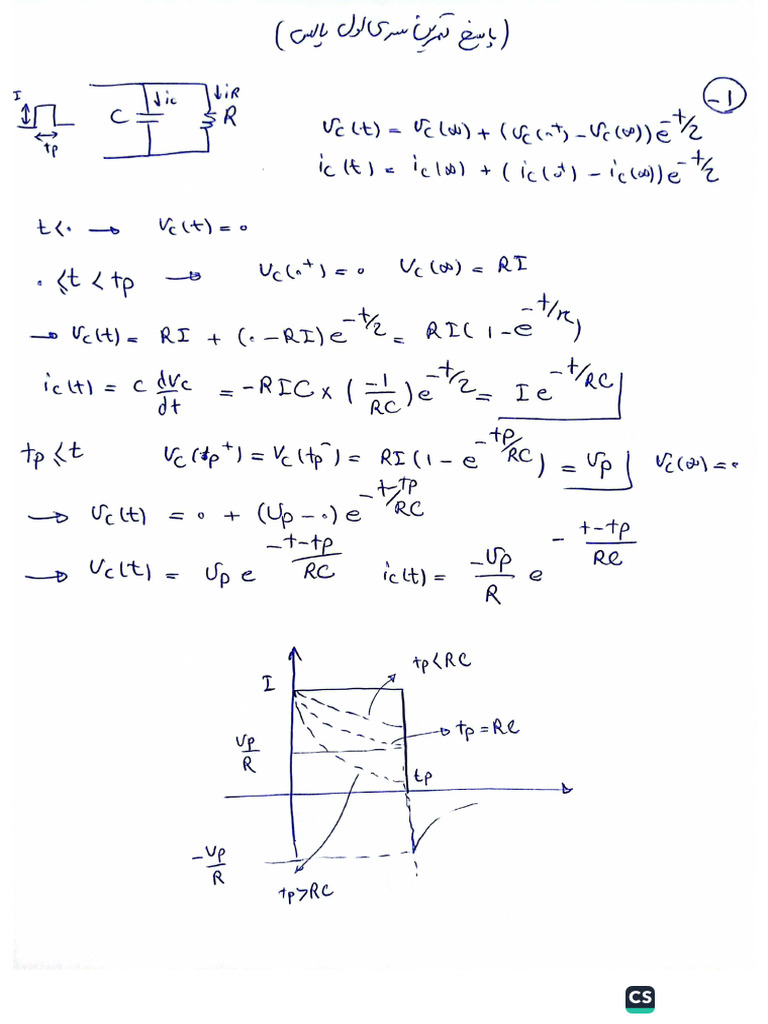 (پاسخ تمرین سری اول پالس)
1-
I
tp
C
↓ic
↓iR
R
Vc(t) = Vc(∞) + (Vc(0⁺) - Vc(∞))e^-t/τ
ic(t) = ic(∞) + (ic(0⁺) - ic(∞))e^-t/τ
t<0 → Vc(t) = 0
0 ≤ t < tp → Vc(0⁺) = 0 Vc(∞) = RI
→ Vc(t) = RI + (0 - RI)e^-t/τ = RI(1 - e^-t/RC)
ic(t) = C dVc/dt = -RIC × (-1/RC)e^-t/τ = I e^-t/RC
tp ≤ t Vc(tp⁺) = Vc(tp⁻) = RI(1 - e^-tp/RC) = Vp Vc(∞) = 0
→ Vc(t) = 0 + (Vp - 0)e^-t-tp/RC
→ Vc(t) = Vp e^-t-tp/RC ic(t) = -Vp/R e^-t-tp/RC
tp<RC
I
tp = RC
Vp/R
tp
-Vp/R
tp>RC
CS